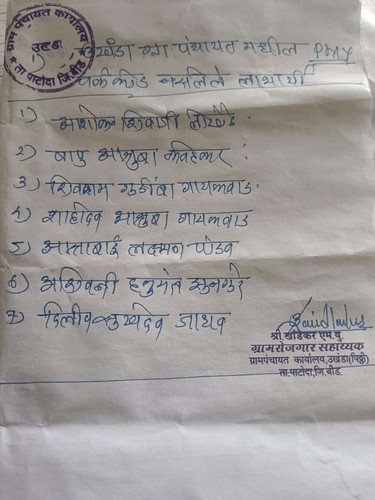 ग्राम पंचायत कार्यालय
उखंडा
ता. पाटोदा जि. बीड
उखंडा ग्रा पंचायत मधील PMAY
वर्ककोड नसलेले लाभार्थी
1) अशोक शिवाजी
2) बापु आश्रुबा कवठेकर
3) शिवराम गायकवाड
4) शाहदेव आश्रुबा गायकवाड
5) आसाबाई लक्ष्मण पंडव
6) अश्विनी हनुमंत
7) दिलीप सुखदेव जाधव
श्री. खाडेकर एम. यु.
ग्रामरोजगार सहाय्यक
ग्रामपंचायत कार्यालय, उखंडा(पिठ्ठी)
ता. पाटोदा, जि. बीड.